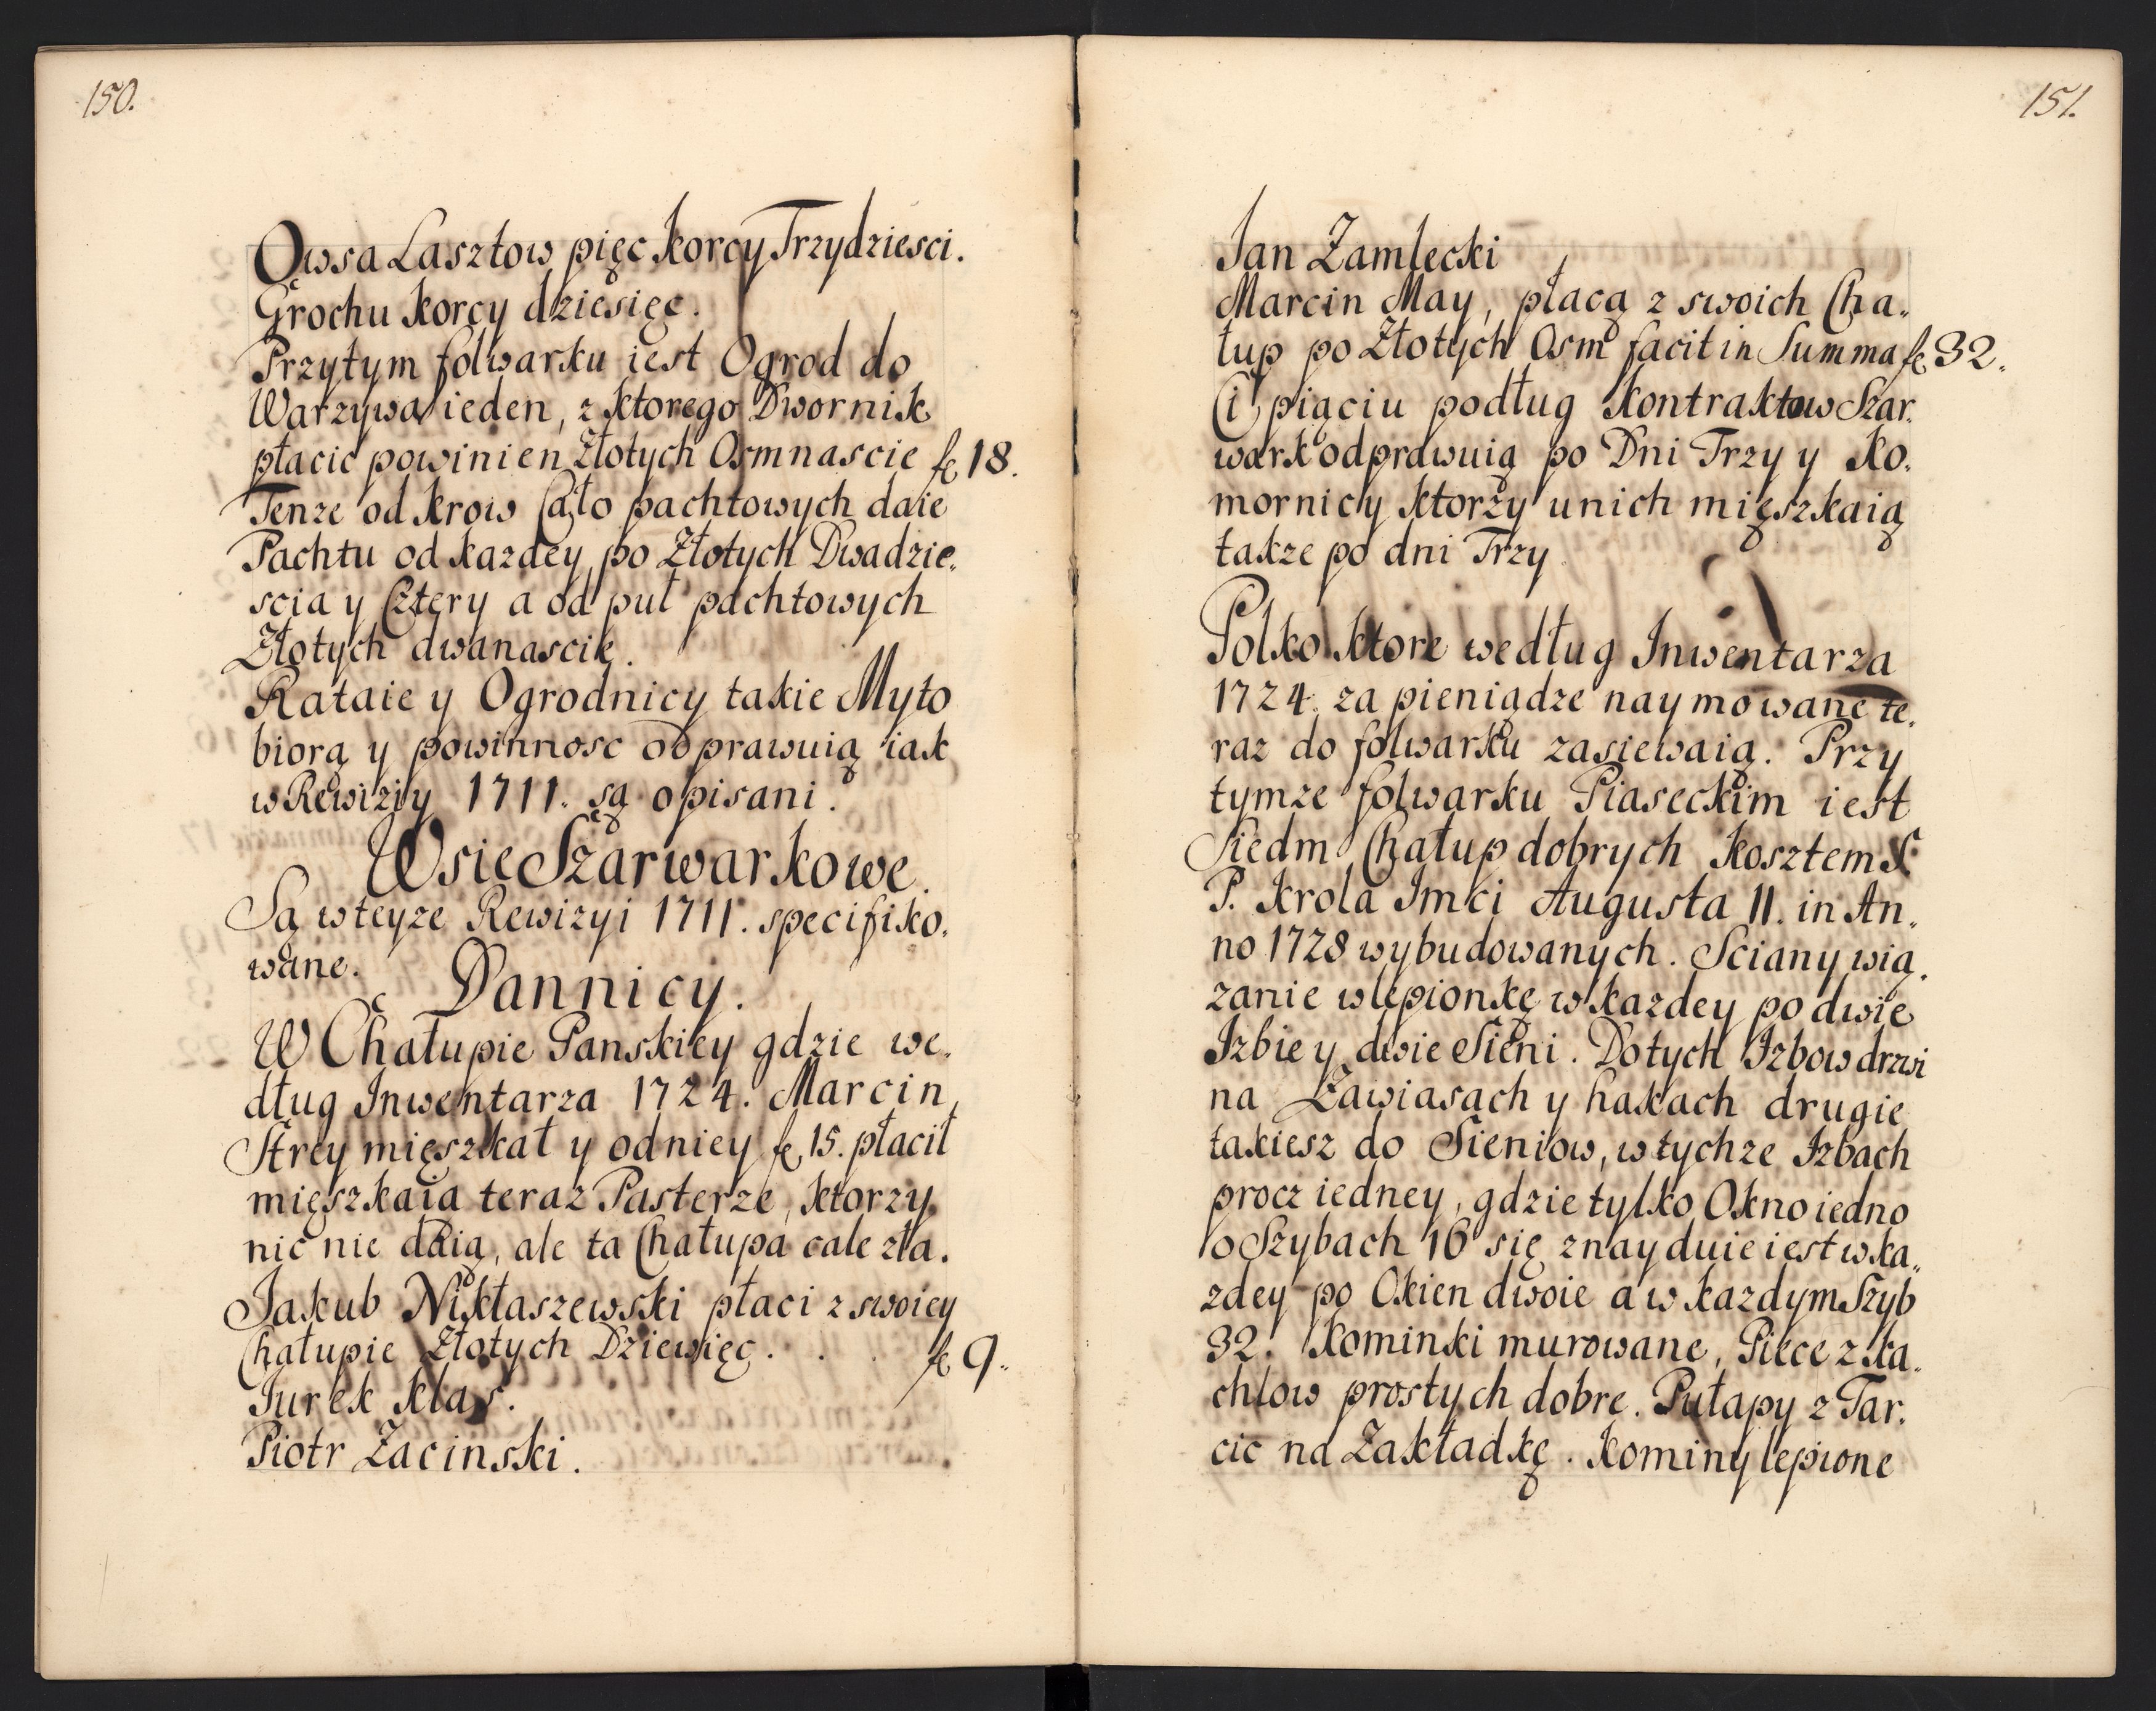 150.
Owsa Lasztow pięc Korcy Trzydziesci.
Grochu Korcy dziesięc.
Przytym folwarku iest Ogrod do
Warzywa ieden, z Ktorego Dwornik
płacic powinien Złotych Osmnascie f. 18.
Tenze od Krow Cało pachtowych daie
Pachtu od Kazdey po Złotych Dwadzie„
scia y Cztery a od puł pachtowych
Złotych dwanascie.
Rataie y Ogrodnicy takie Myto
biorą y powinnosc odprawuią iak
w Rewiziy 1711. są opisani.
Wsie Szarwarkowe.
Są wteyze Rewizyi 1711. specifiko„
wane.
Dannicy.
W Chałupie Panskiey gdzie we„
dług Inwentarza 1724. Marcin
Strey mięszkał y odniey f. 15. płacił
mięszkaia teraz Pasterze, Ktorzy
nic nie daią, ale ta Chałupa cale zła.
Jakub Nikłaszewski płaci z swoiey
Chałupie Złotych Dziewięc . . . f. 9„
Jurek Klas.
Piotr Zacinski.
151.
Jan Zamlecki
Marcin May, płacą z swoich Cha„
łup po Złotych Osm facit in Summa f. 32„
Ci piąciu podług Kontraktow Szar„
wark odprawuią po Dni Trzy y Ko„
mornicy Ktorzy unich mięszkaią
takze po dni Trzy
Polko Ktore według Inwentarza
1724. za pieniądze naymowane te„
raz do folwarku zasiewaią. Przy
tymze folwarku Piaseckim iest
Siedm Chałup dobrych Kosztem S.
P. Krola Imci Augusta II. in An„
no 1728 wybudowanych. Sciany wią„
zanie wlepionkę w Kazdey po dwie
Izbie y dwie Sieni. Dotych Izbow drzwi
na Zawiasach y hakach drugie
takiesz do Sieniow, w tychze Izbach
procz iedney, gdzie tylko Okno iedno
o Szybach 16 się znayduie iest w ka„
zdey po Okien dwoie a w Kazdym Szyb
32. Kominki murowane, Piece z Ka„
chlow prostych dobre. Pułapy z Tar„
cic na Zakładkę. Kominy lepione